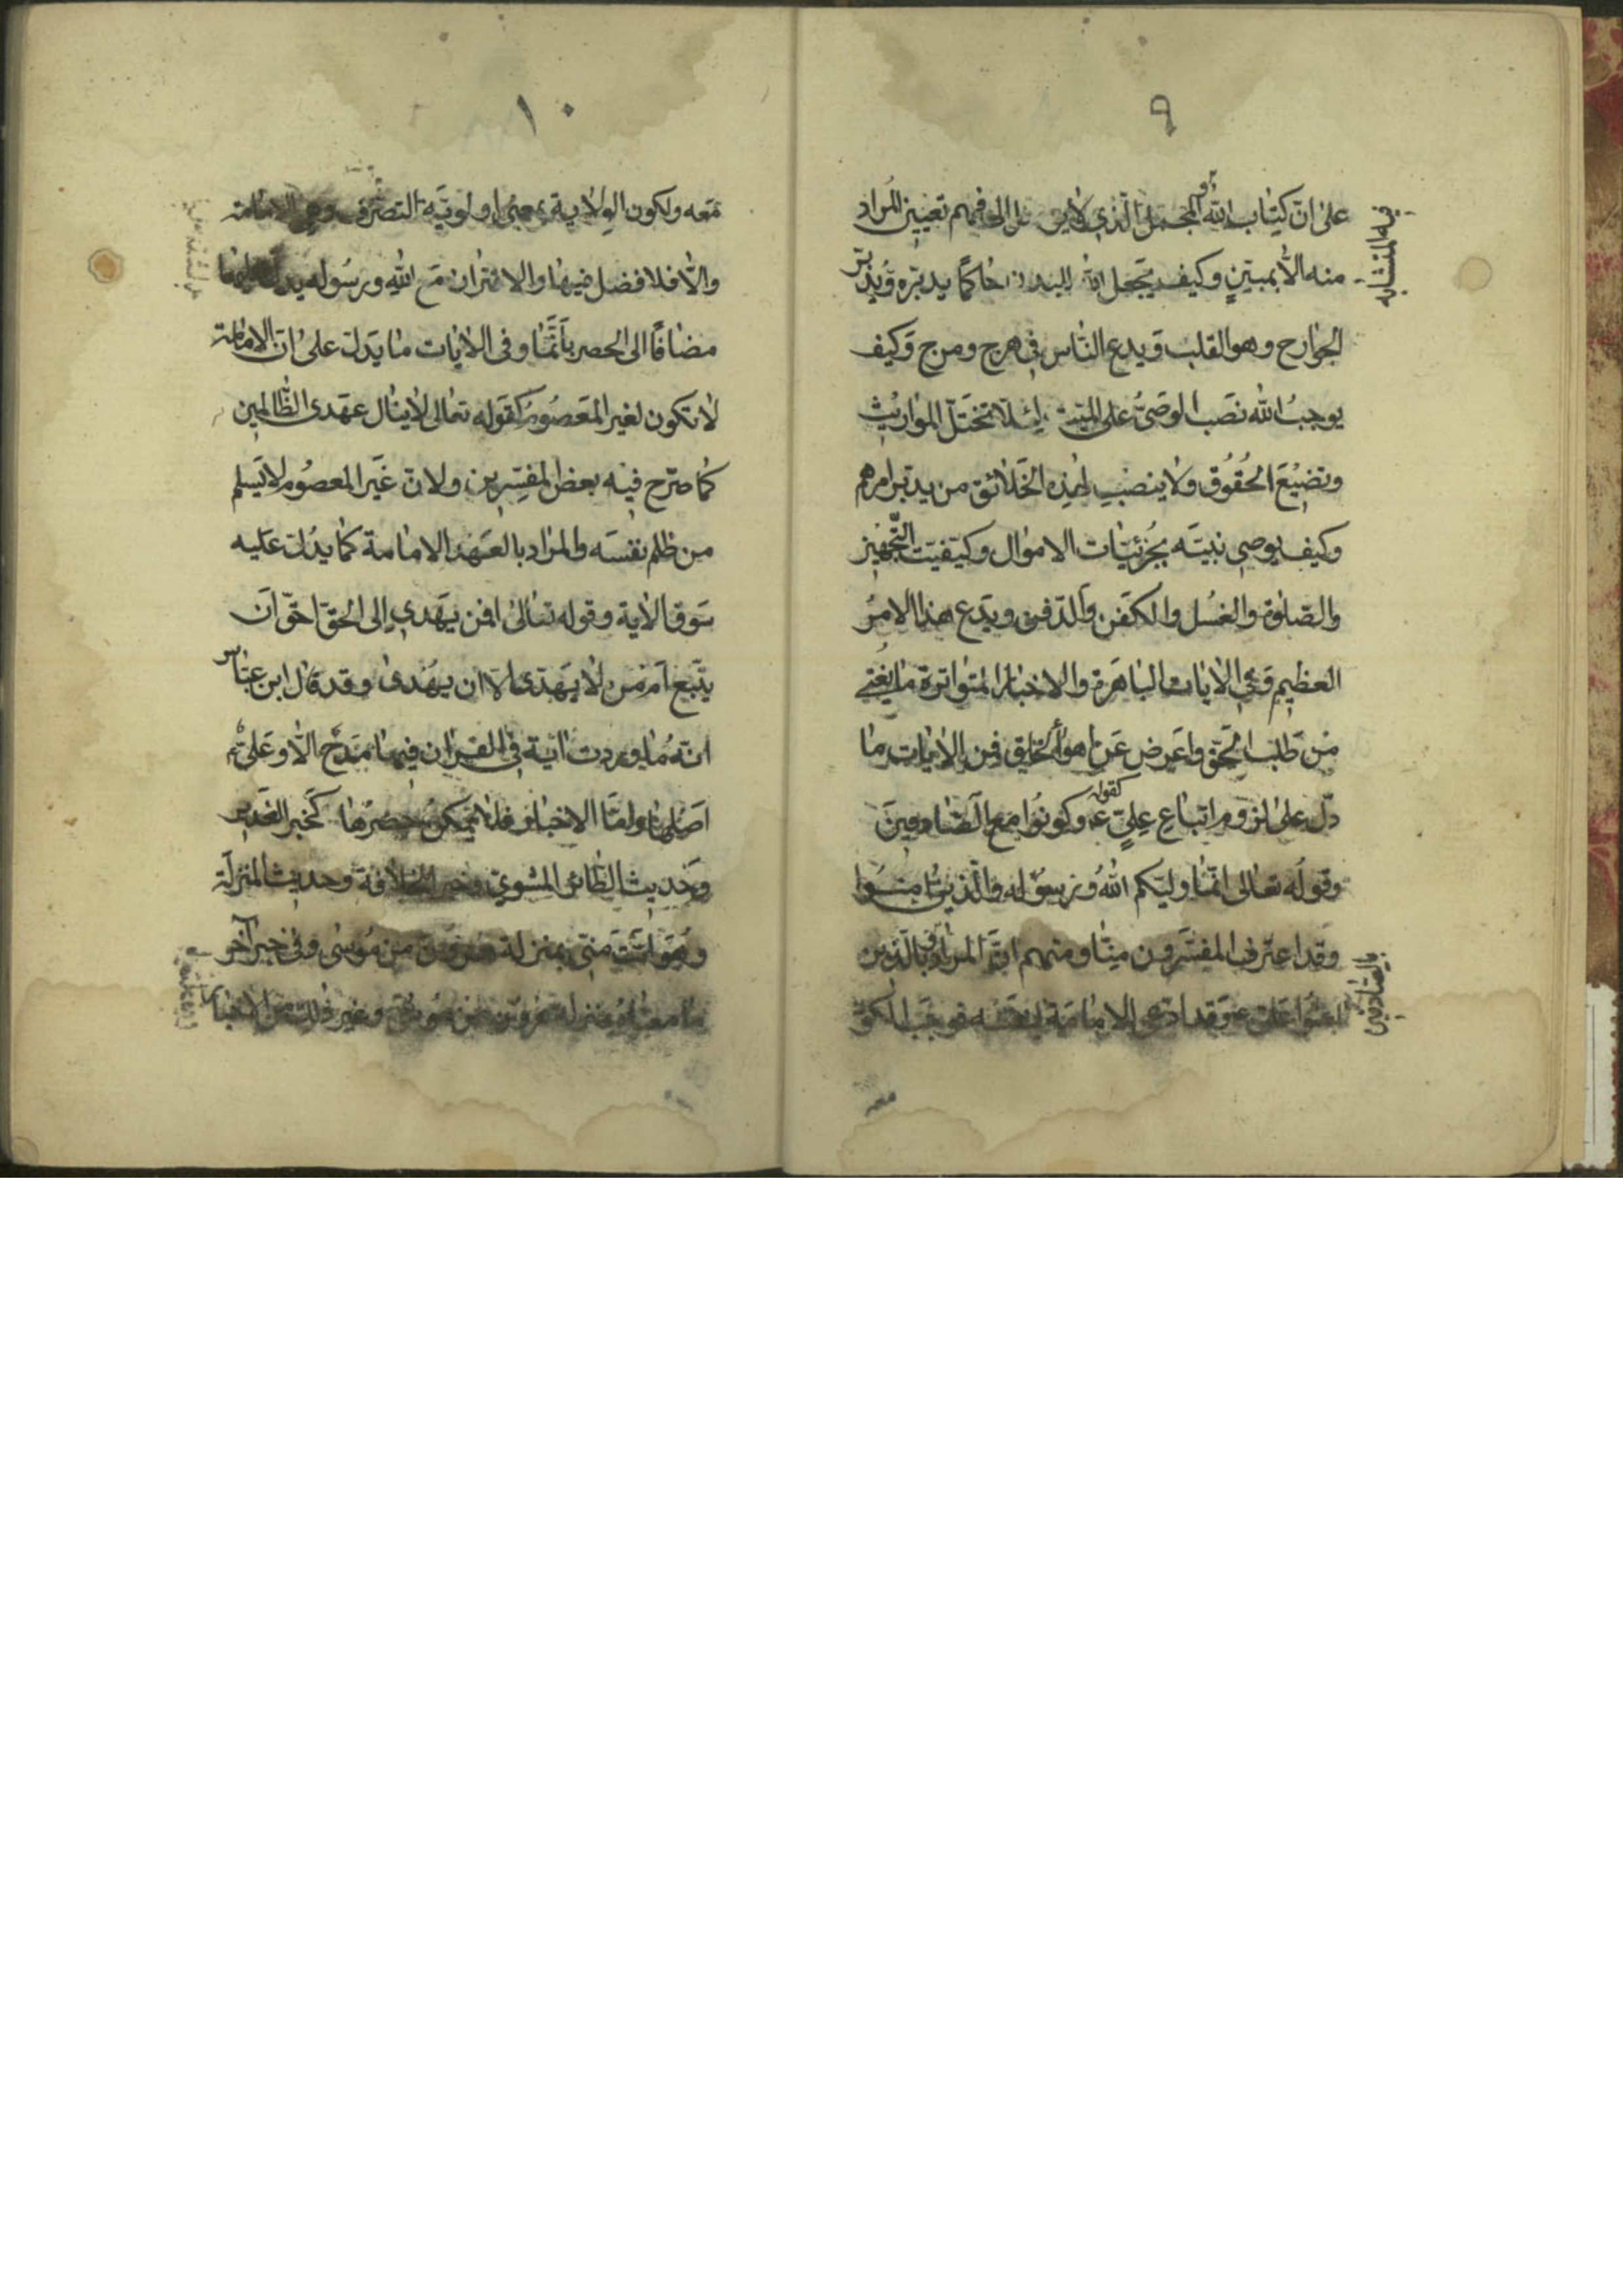 ٩
على ان كتاب الله المجمل الذي لا الى فهم تعيين المراد
فيه المتشابه
منه الا بمبين وكيف يجعل الله للبدن حاكما يدبره ويدبر
الجوارح وهو القلب ويدع الناس في هرج ومرج وكيف
يوجب الله نصب الوصي على الميت لئلا تختل المواريث
وتضيع الحقوق ولا ينصب لهذه الخلائق من يدبر امرهم
وكيف يوصي نبيه بجزئيات الاموال وكيفيت التجهيز
والصلوة والغسل والكفن والدفن ويدع هذا الامر
العظيم وفي الايات الباهرة والاخبار المتواترة ما يغني
من طلب الحق واعرض عن اهواء الخلق فمن الايات ما
دل على لزوم اتباع علي ع كقوله وكونوا مع الصادقين
وقوله تعالى انما وليكم الله ورسوله والذين امنوا
وقد اعترف المفسرون منا ومنهم ان المراد بالذين
والصادقين
امنوا علي ع وقد ادعى الامامة لنفسه فوجب الكون
١٠
معه ولكون الولاية بمعنى اولوية التصرف وهي الامامة
والا فلا فضل فيها والاقتران مع الله ورسوله يدل
مضافا الى الحصر بانما وفي الايات ما يدل على ان الامامة
لا تكون لغير المعصوم كقوله تعالى لا ينال عهدى الظالمين
كما صرح فيه بعض المفسرين ولان غير المعصوم لا يسلم
من ظلم نفسه والمراد بالعهد الامامة كما يدل عليه
سوق الاية وقوله تعالى افمن يهدي الى الحق احق ان
يتبع امن لا يهدى الا ان يهدى وقد قال ابن عباس
انه ما وردت اية في القران فيها مدح الا وعلي ع
اصلها واما الاخبار فلا يمكن حصرها كخبر الغدير
وحديث الطائر المشوي وخبر الخلافة وحديث المنزلة
وهو انت مني بمنزلة هرون من موسى وفي خبر آخر
بمنزلة هرون من موسى وغير ذلك من الاخبار